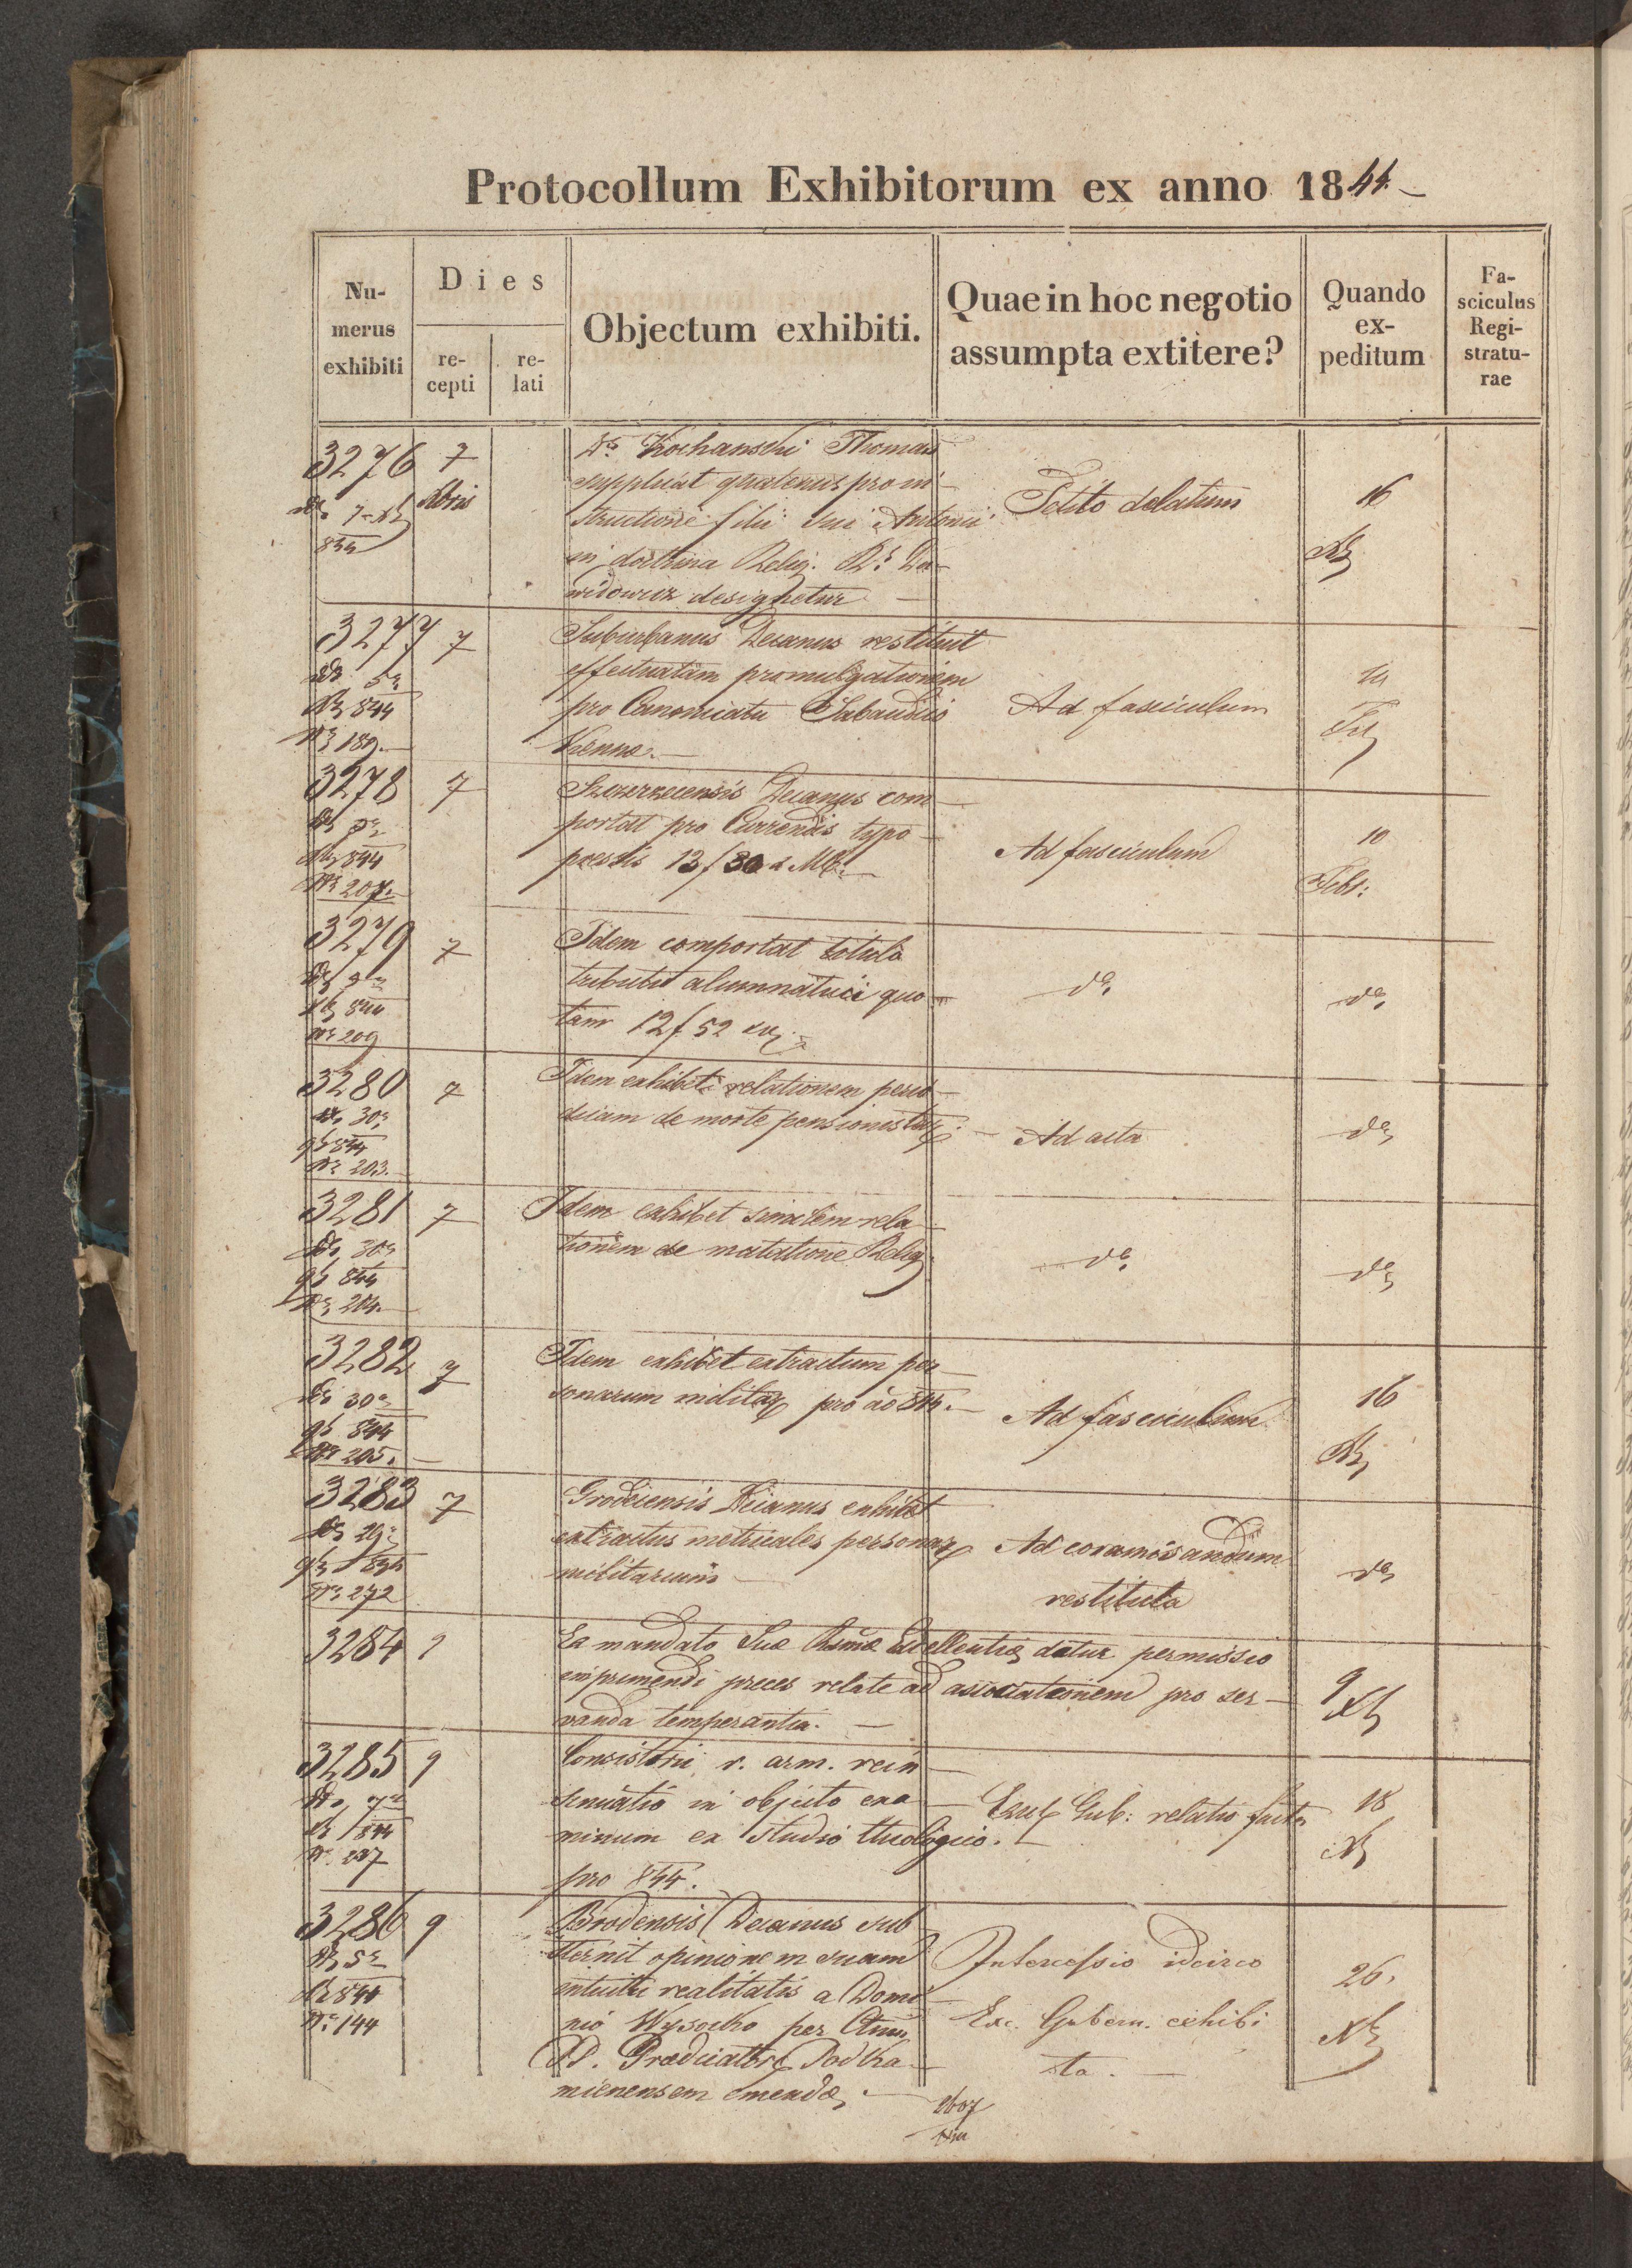 Protocollum Exhibitorum ex anno 1844
Numerus exhibiti
Dies
recepti
relati
Objectum exhibiti.
Quae in hoc negotio assumpta extitere?
Quando expeditum
Fasciculus Registraturae
3276 7
Xbris
844
Kochanski Thomas
supplicat quatenus pro in-
structione filii sui Antonii
in doctrina Relig.
widowicz designetur
Petito delatum
16
3277 7
844
Nr 189
Suburbanus Decanus restituit
effectuatam promulgationem
pro Canonicatu Sabaudiis
Vienna.
Ad fasciculum
3278 7
844
Nr 207
Szczerzecensis Decanus com-
portat pro Currendis typo
pressis 13 f 30 x MC.
Ad fasciculum
10
Febr:
3279 7
844
Nr 209
Idem comportat titulo
tributi alumnatici quo-
tam 12 f 52 xr
do
do
3280 7
30
9b 844
Nr 203.
Idem exhibet relationem perio-
dicam de morte pensionistar.
Ad acta
do
3281 7
30
9b 844
Nr 204.
Idem exhibet similem rela-
tionem de mutatione Relig
do
do
3282 7
30
9b 844
Nr 205.
Idem exhibet extractum per-
sonarum militar pro ao 844.
Ad fasciculum
16
3283 7
29
Nr 272
Grodecensis Decanus exhibet
extractus metricales personar
militarium
Ad coramisandum
restituta
do
3284 9
Ex mandato Suae Excellentiae datur permissio
imprimendi preces relate ad asociationem pro ser-
vanda temperantia.
9
Xb
3285 9
844
Consistorii r. arm. rein-
sinuatio in objecto exa-
minum ex studio theologico
pro 844.
Gub: relatio facta
18
3286 9
5
844
Nr 144
Brodensis Decanus sub
sternit opinionem suam
intuitu realitatis a Domi
nio Wysocko per
PP. Praedicator Podka-
mienensem emendae
Intercessio idcirco
Exc. Gubern. exhibi
ta.
26.